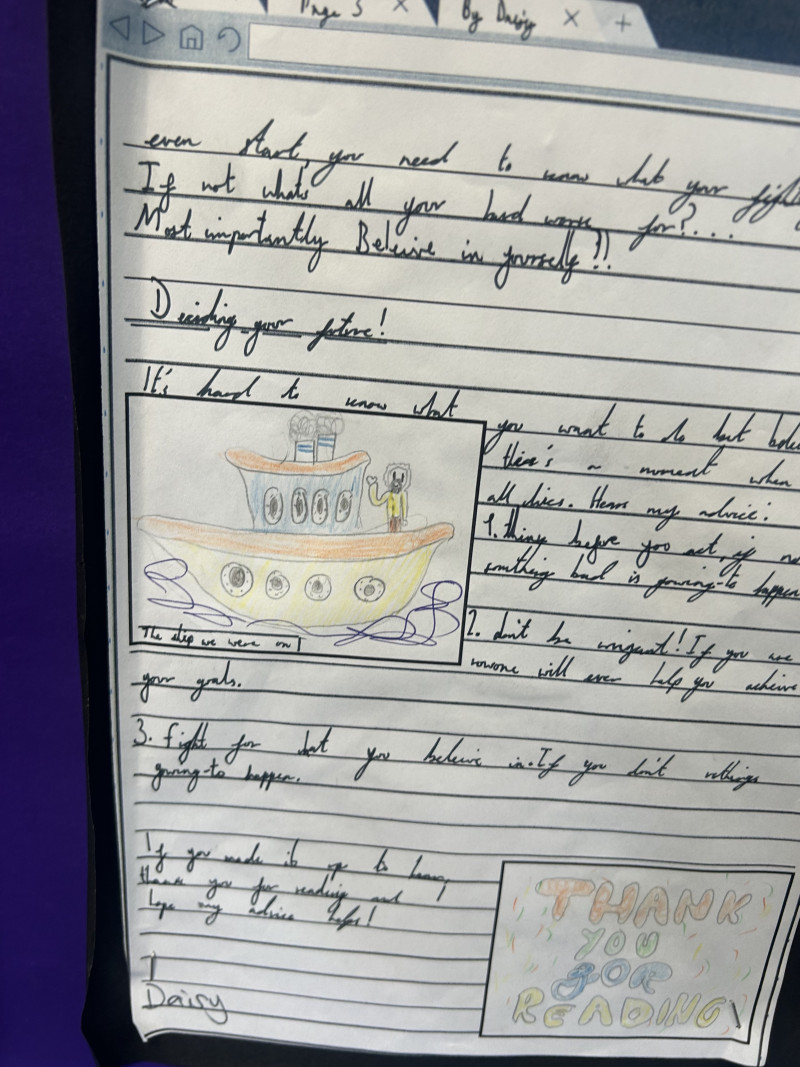 Page 5
By Daisy
even start, you need to know what your
If not whats all your hard work for?...
Most importantly Beleive in yourself!!
Deciding your future!
It's hard to know what you want to do but
there's a moment when
all lives. Heres my advice:
1. think before you act, if
something bad is gowing-to happen
The ship we were on
2. don't be If you are
noone will ever help you acheive
your goals.
3. fight for what you beleive in. If you don't nothings
gowing-to happen.
If you made it up to hear,
thank you for reading and I
hope my advice helps!
Daisy
THANK
YOU
FOR
READING